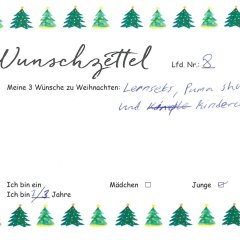 Wunschzettel Lfd. Nr.: 8
Meine 3 Wünsche zu Weihnachten: Lernsets, Puma
und Kinder
Ich bin ein Mädchen ☐ Junge ☑
Ich bin 7/8 Jahre